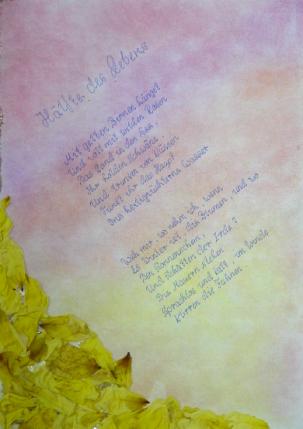 Hälfte des Lebens
Mit gelben Birnen hänget
Und voll mit wilden Rosen
Das Land in den See,
Ihr holden Schwäne,
Und trunken von Küssen
Tunkt ihr das Haupt
Ins heilignüchterne Wasser
Weh mir, wo nehm ich, wenn
Es Winter ist, die Blumen, und wo
Den Sonnenschein,
Und Schatten der Erde?
Die Mauern stehn
Sprachlos und kalt, im Winde
Klirren die Fahnen